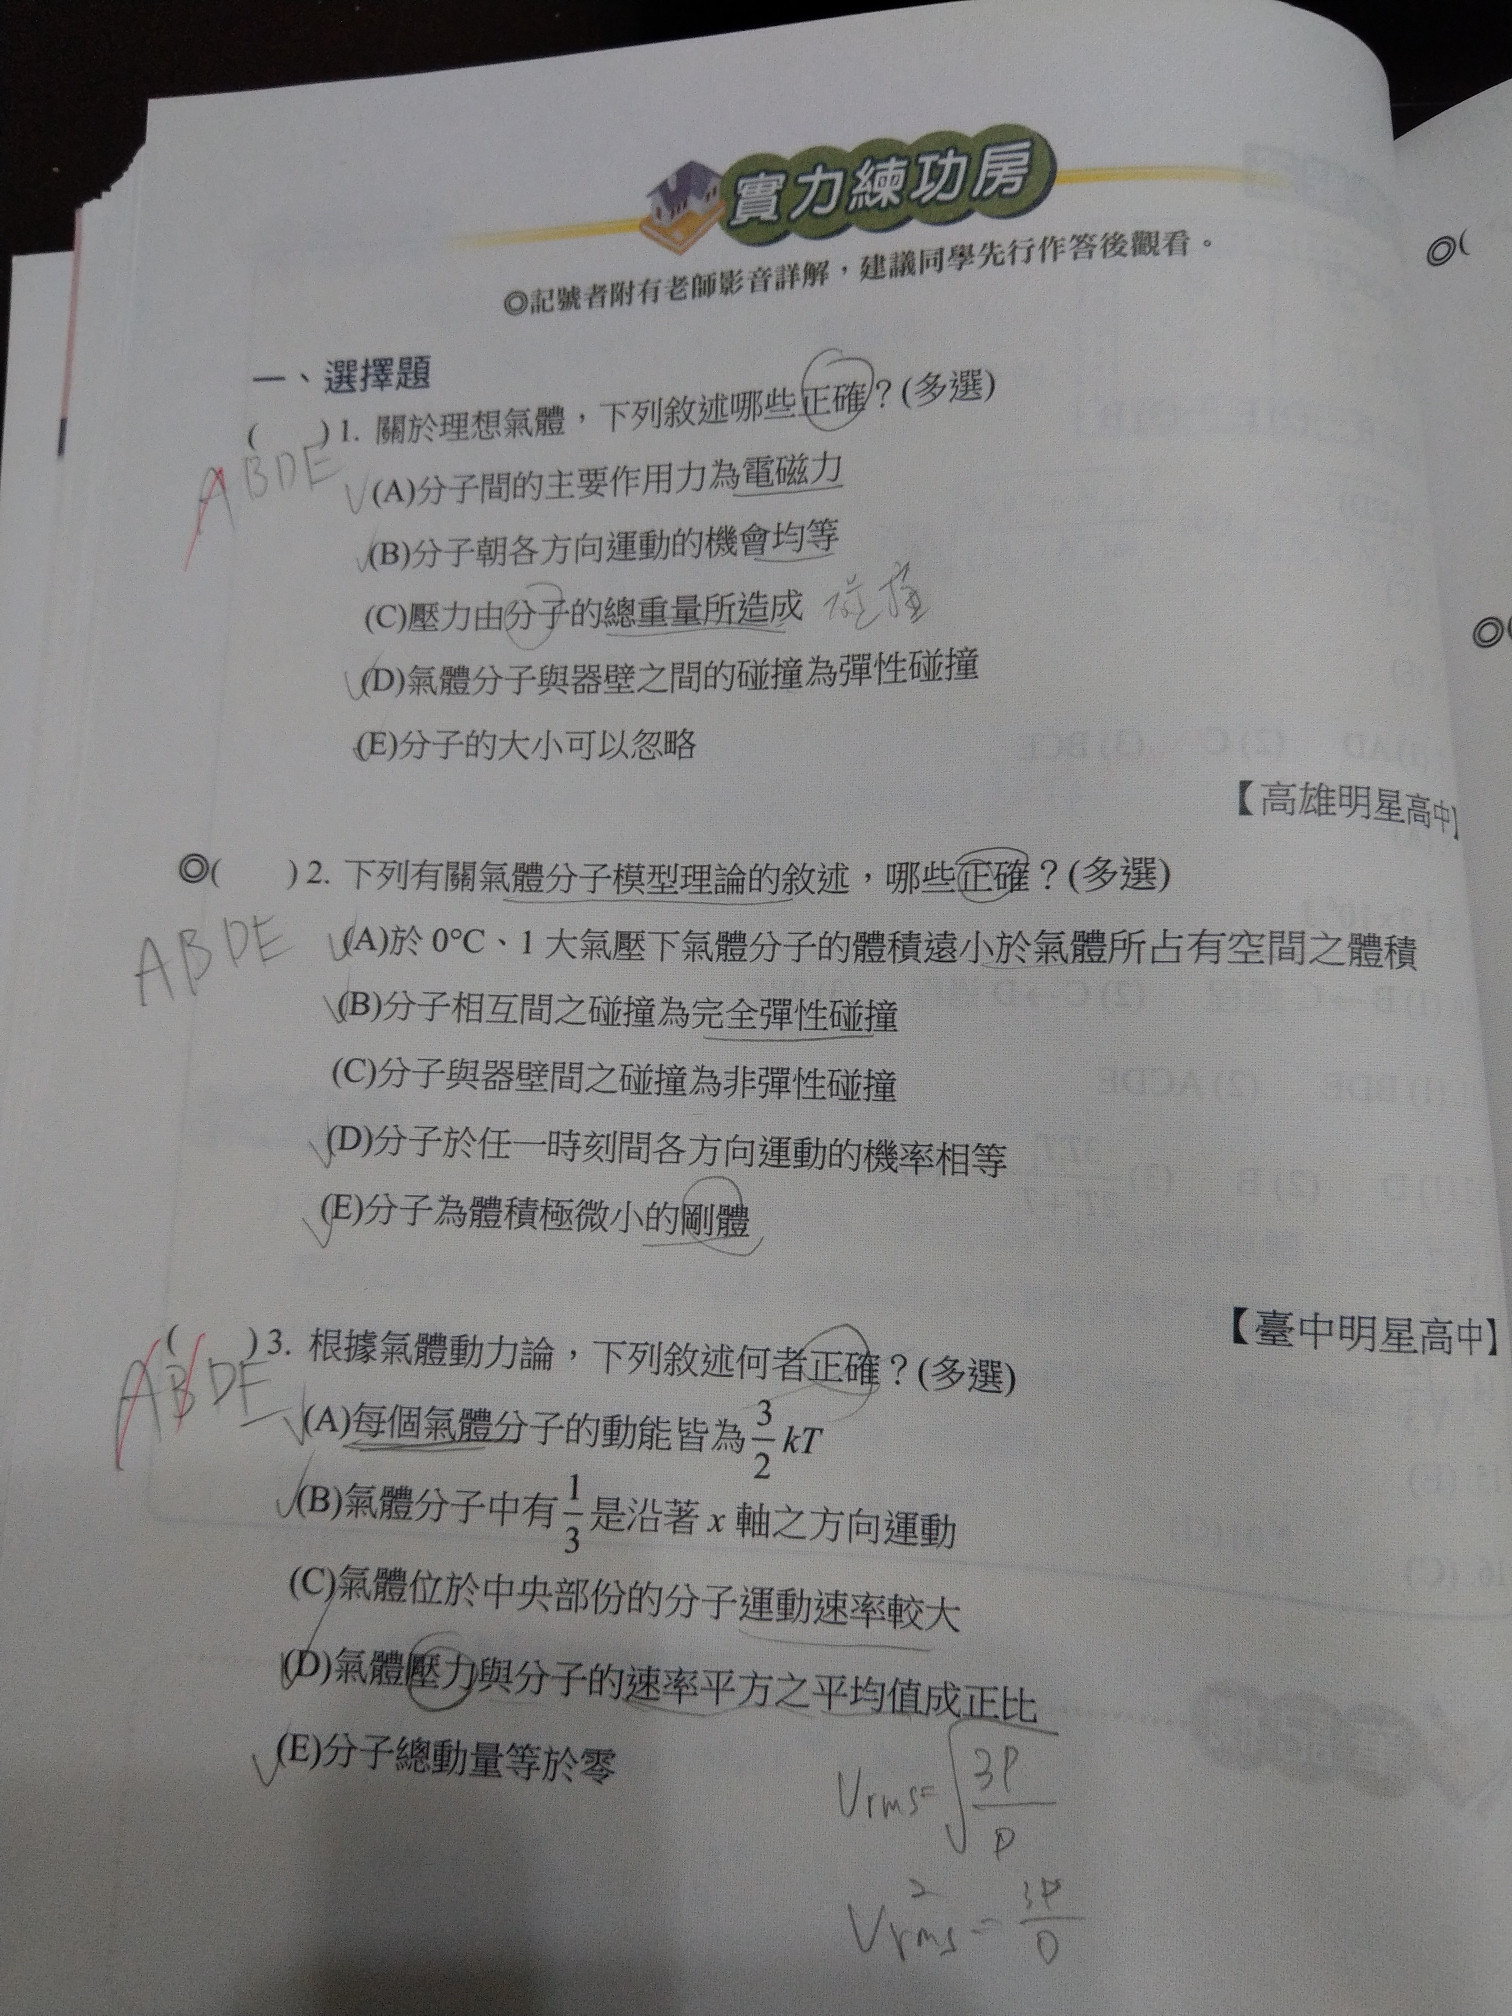 實力練功房
◎記號者附有老師影音詳解，建議同學先行作答後觀看。
一、選擇題
(　　)1. 關於理想氣體，下列敘述哪些正確？(多選)
ABDE
(A)分子間的主要作用力為電磁力
(B)分子朝各方向運動的機會均等
(C)壓力由分子的總重量所造成 碰撞
(D)氣體分子與器壁之間的碰撞為彈性碰撞
(E)分子的大小可以忽略
【高雄明星高中】
◎(　　)2. 下列有關氣體分子模型理論的敘述，哪些正確？(多選)
ABDE
(A)於 0°C、1 大氣壓下氣體分子的體積遠小於氣體所占有空間之體積
(B)分子相互間之碰撞為完全彈性碰撞
(C)分子與器壁間之碰撞為非彈性碰撞
(D)分子於任一時刻間各方向運動的機率相等
(E)分子為體積極微小的剛體
【臺中明星高中】
(　　)3. 根據氣體動力論，下列敘述何者正確？(多選)
ABDE
(A)每個氣體分子的動能皆為 3/2 kT
(B)氣體分子中有 1/3 是沿著 x 軸之方向運動
(C)氣體位於中央部份的分子運動速率較大
(D)氣體壓力與分子的速率平方之平均值成正比
(E)分子總動量等於零
Vrms=√(3P/ρ)
V²rms=3P/ρ